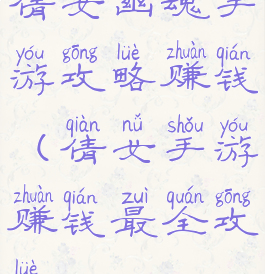 倩女幽魂手
yóu gōng lüè zhuàn qián
游攻略赚钱
qiàn nǚ shǒu yóu
（倩女手游
zhuàn qián zuì quán gōng
赚钱最全攻
lüè